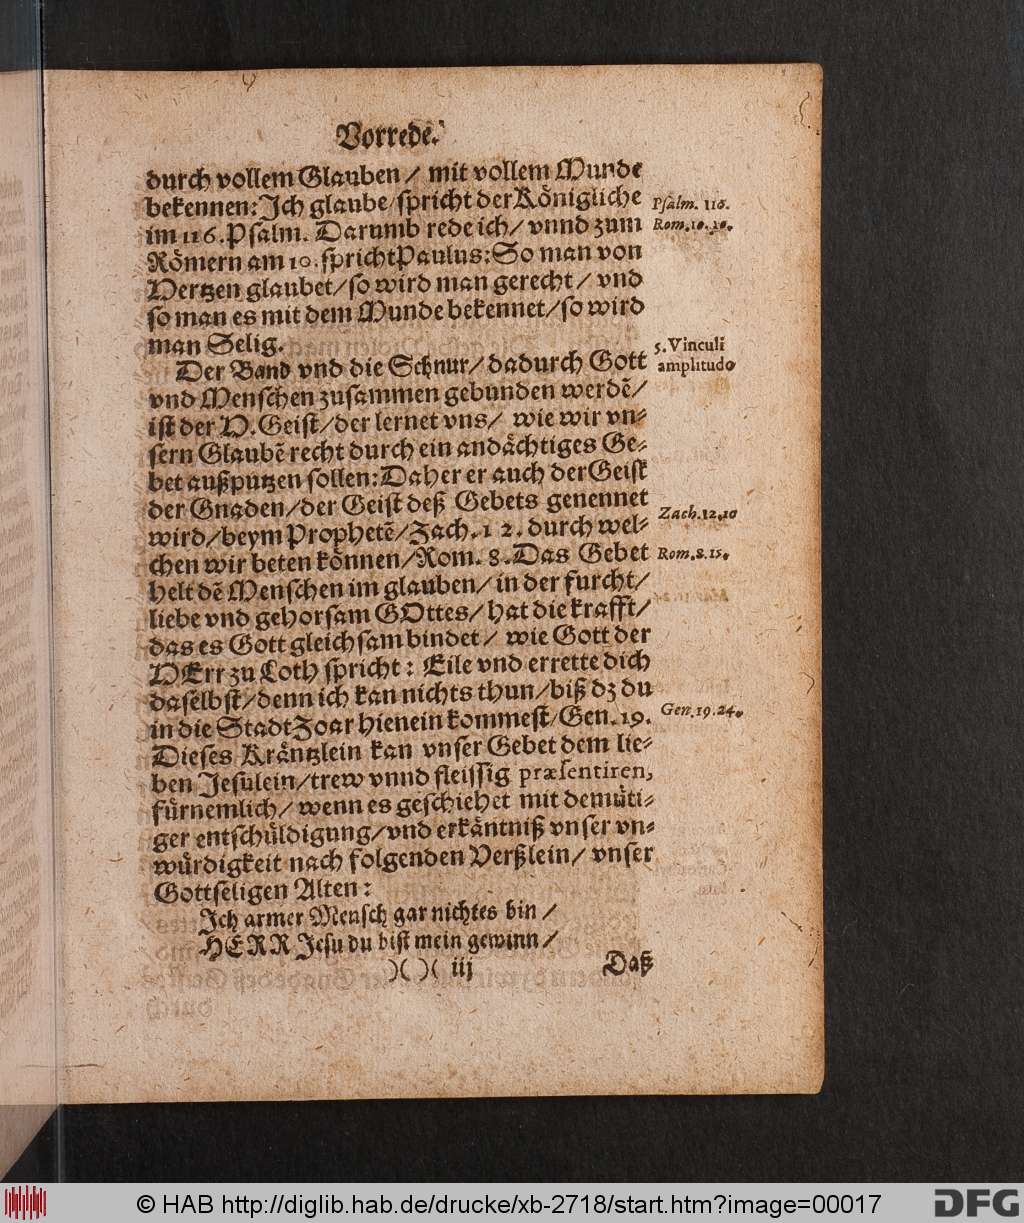 Vorrede.
durch vollem Glauben / mit vollem Munde
bekennen: Ich glaube / spricht der Königliche
Psalm. 116.
im 116. Psalm. Darumb rede ich / vnnd zum
Rom. 10. 10.
Römern am 10. spricht Paulus: So man von
Hertzen glaubet / so wird man gerecht / vnd
so man es mit dem Munde bekennet / so wird
man Selig.
Der Band vnd die Schnur / dadurch Gott
5. Vinculi
amplitudo
vnd Menschen zusammen gebunden werdẽ /
ist der H. Geist / der lernet vns / wie wir vn-
sern Glaubẽ recht durch ein andächtiges Ge-
bet außputzen sollen: Daher er auch der Geist
der Gnaden / der Geist deß Gebets genennet
Zach. 12. 10
wird / beym Prophetẽ / Zach. 12. durch wel-
chen wir beten können / Rom. 8. Das Gebet
Rom. 8. 15.
helt dẽ Menschen im glauben / in der furcht /
liebe vnd gehorsam GOttes / hat die krafft /
das es Gott gleichsam bindet / wie Gott der
HErr zu Loth spricht: Eile vnd errette dich
daselbst / denn ich kan nichts thun / biß dz du
in die Stadt Zoar hienein kommest / Gen. 19.
Gen. 19. 24.
Dieses Kräntzlein kan vnser Gebet dem lie-
ben Jesulein / trew vnnd fleissig præsentiren,
fürnemlich / wenn es geschiehet mit demüti-
ger entschüldigung / vnd erkäntniß vnser vn-
würdigkeit nach folgenden Verßlein / vnser
Gottseligen Alten:
Ich armer Mensch gar nichtes bin /
HERR Jesu du bist mein gewinn /
)( )( iij
Daß
© HAB http://diglib.hab.de/drucke/xb-2718/start.htm?image=00017
DFG